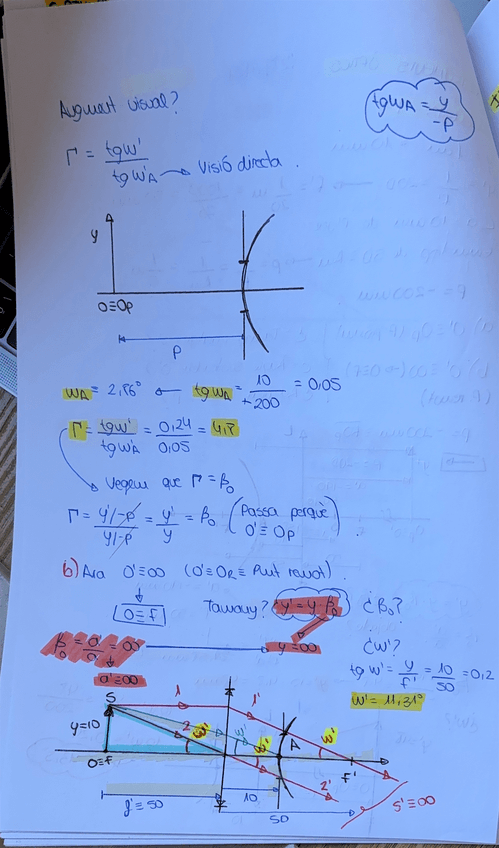 Augment visual?
tgwA = y / -p
Γ = tgw' / tgwA → Visió directa.
y
O≡Op
P
wA = 2,86° ← tgwA = 10 / +200 = 0,05
Γ = tgw' / tgwA = 0,24 / 0,05 = 4,8
Vegem que Γ = βo
Γ = y'/-p / y/-p = y' / y = βo (Passa perquè O' ≡ Op).
b) Ara O' ≡ ∞ (O' ≡ OR ≡ Punt remot).
O ≡ f
Tamany? y' = y·βo ¿βo?
βo = a' / a = ∞ → y' = ∞
¿w'?
a' ≡ ∞
tg w' = y / f' = 10 / 50 = 0,2
w' = 11,31°
S
1
1'
2
w'
w'
w'
A
w'
y=10
O≡f
F'
2'
S' ≡ ∞
f' = 50
10
50